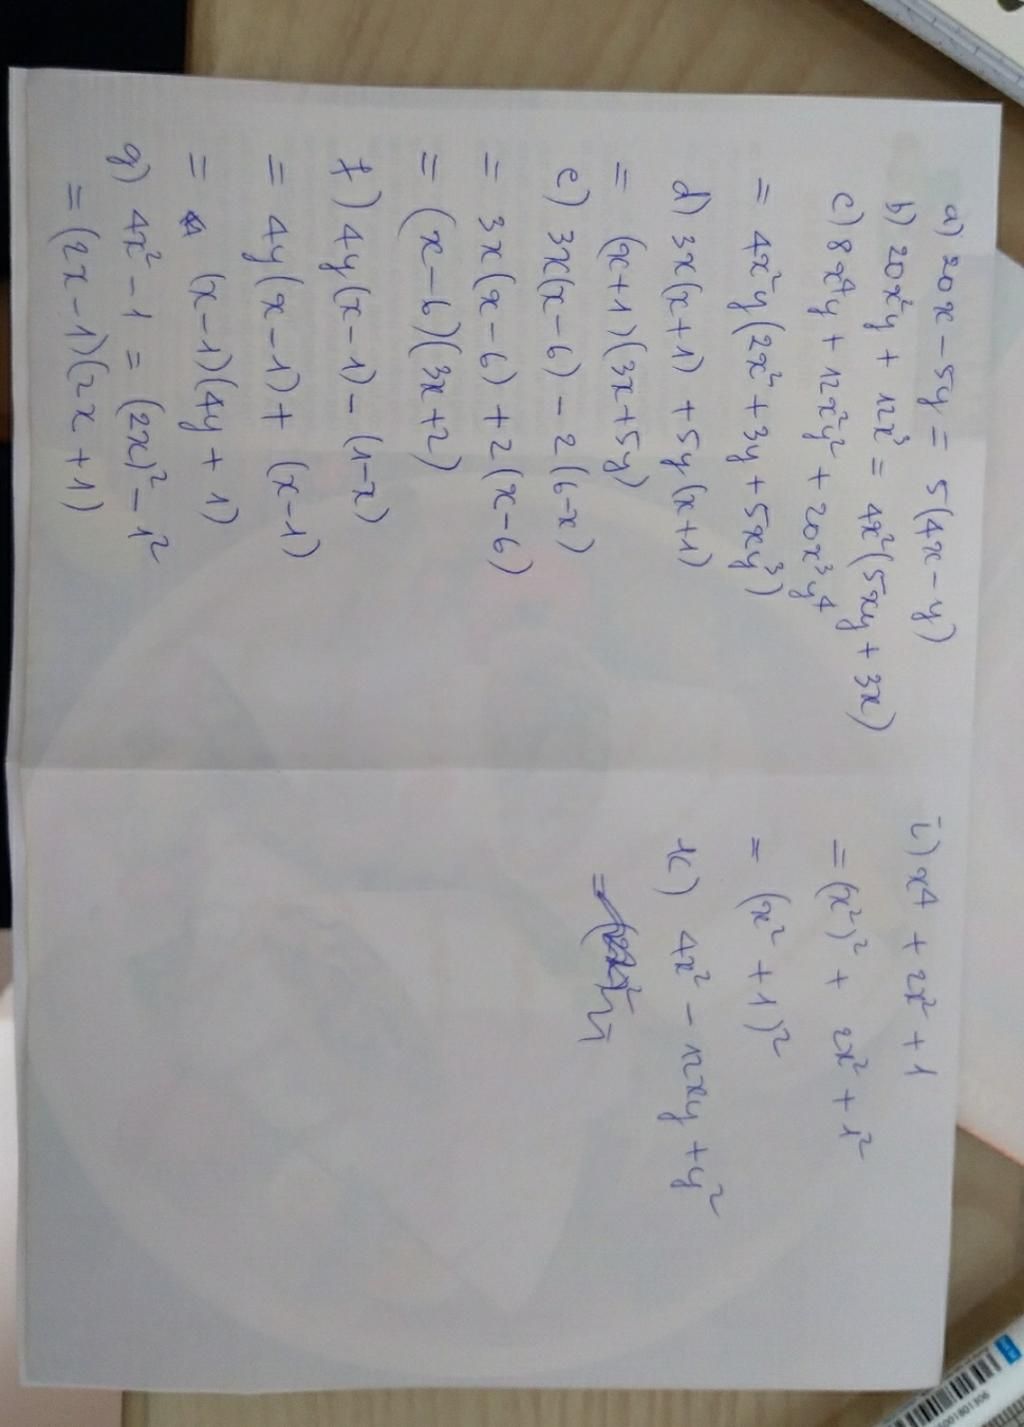 a) 20x - 5y = 5(4x - y)
b) 20x²y + 12x³ = 4x²(5xy + 3x)
c) 8x⁴y + 12x²y² + 20x³y⁴
= 4x²y(2x² + 3y + 5xy³)
d) 3x(x+1) + 5y(x+1)
= (x+1)(3x+5y)
e) 3x(x-6) - 2(6-x)
= 3x(x-6) + 2(x-6)
= (x-6)(3x+2)
f) 4y(x-1) - (1-x)
= 4y(x-1) + (x-1)
= (x-1)(4y+1)
g) 4x² - 1 = (2x)² - 1²
= (2x-1)(2x+1)
i) x⁴ + 2x² + 1
= (x²)² + 2x² + 1²
= (x² + 1)²
k) 4x² - 12xy + y²
=